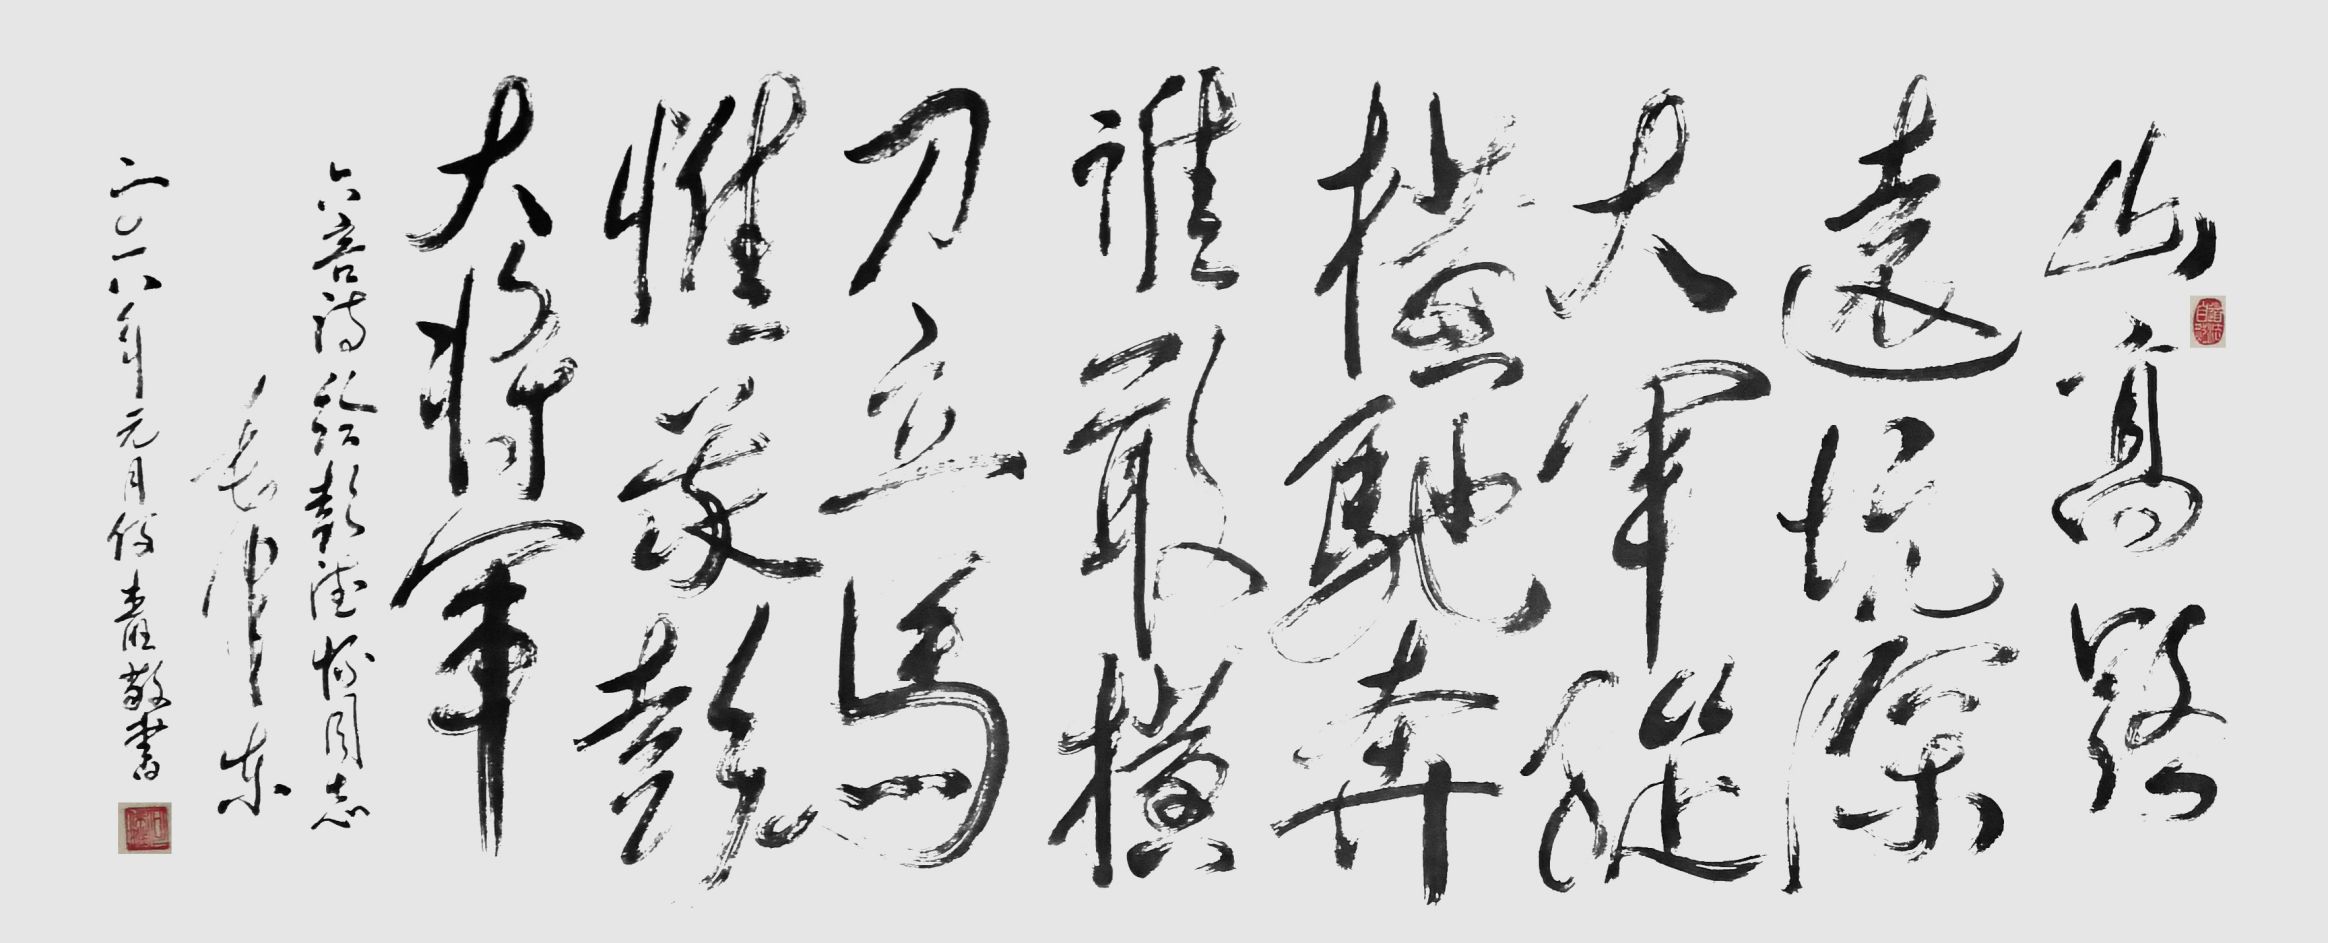 山高路
遠坑深
大軍縱
橫馳奔
誰敢橫
刀立馬
惟我彭
大將軍
六言詩給彭德懷同志
毛澤东
二〇一八年元月敬書